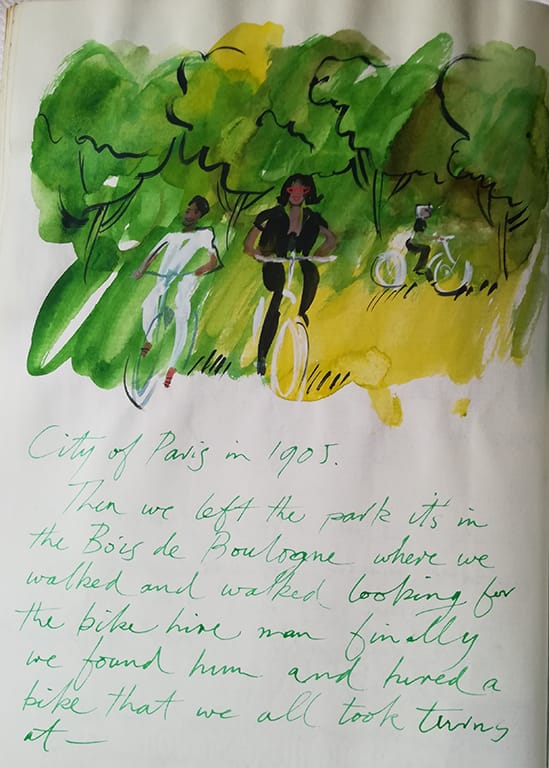 City of Paris in 1905.
Then we left the park it's in
the Bois de Boulogne where we
walked and walked looking for
the bike hire man finally
we found him and hired a
bike that we all took turns
at —